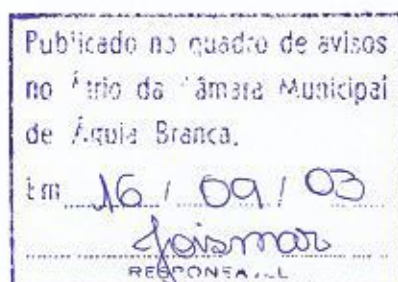 Publicado no quadro de avisos
no Átrio da Câmara Municipal
de Águia Branca.
Em 16 / 09 / 03
Joismar
RESPONSÁVEL